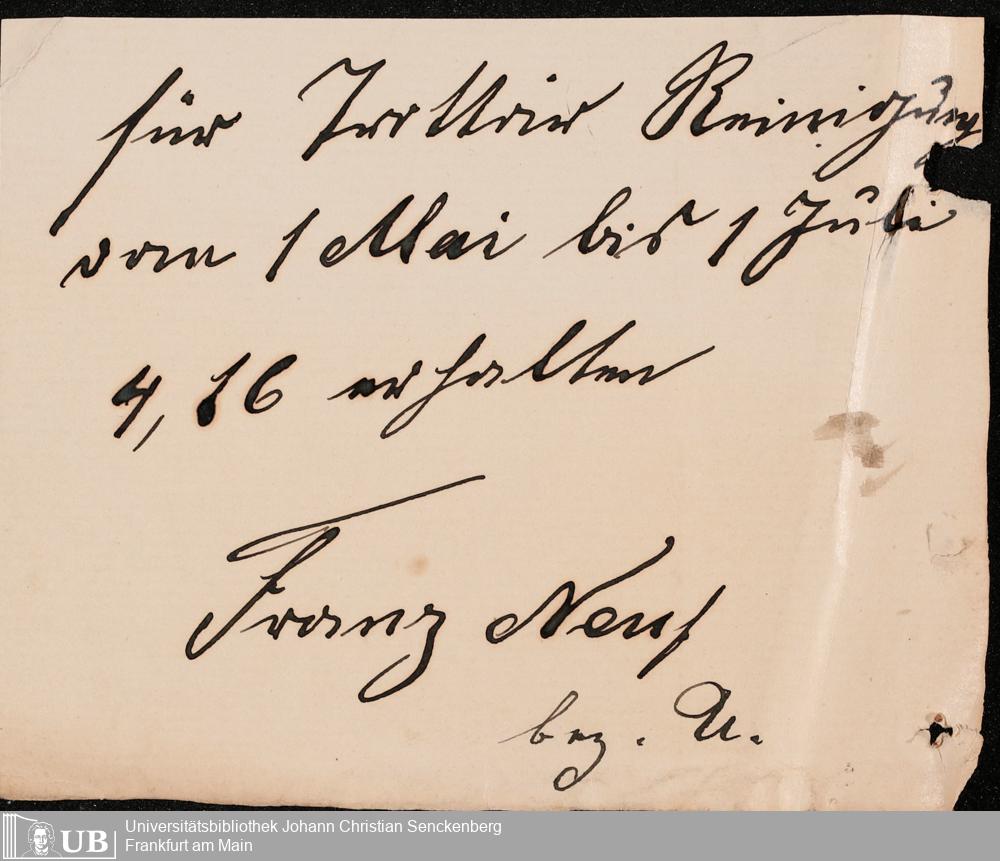 für Trottoir Reinigung
vom 1 Mai bis 1 Juli
4,16 erhalten
Franz
bez. A.
UB
Universitätsbibliothek Johann Christian Senckenberg
Frankfurt am Main